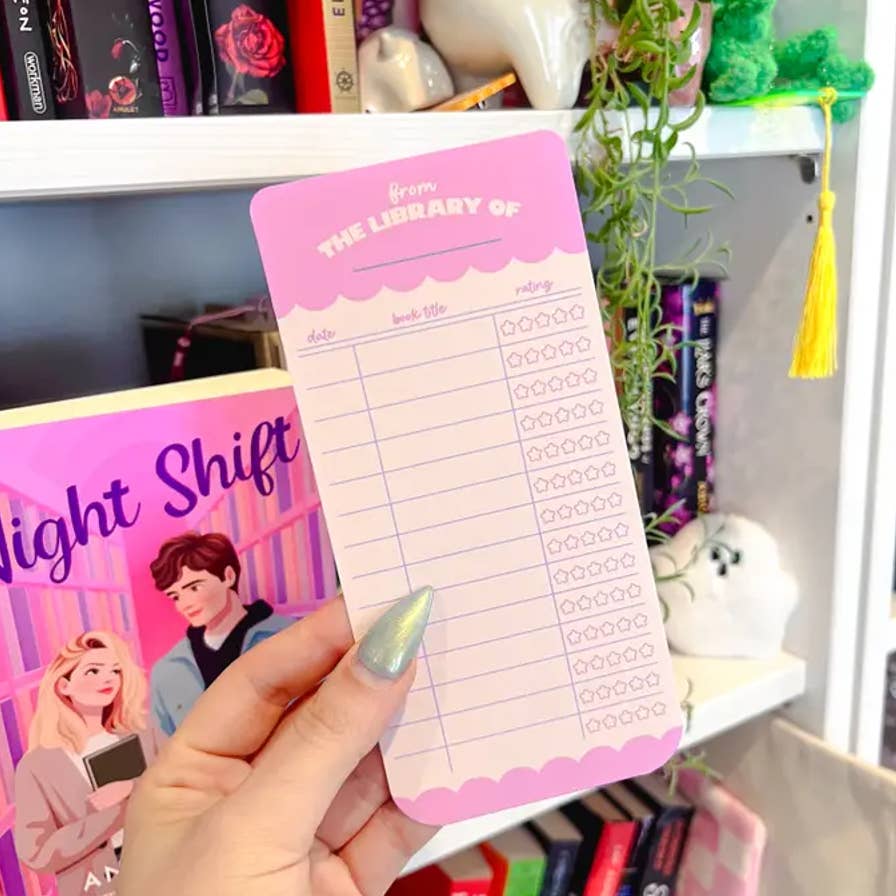 workman
AMULET
from
THE LIBRARY OF
date book title rating
Night Shift
THE DARK'S CROWN
AN